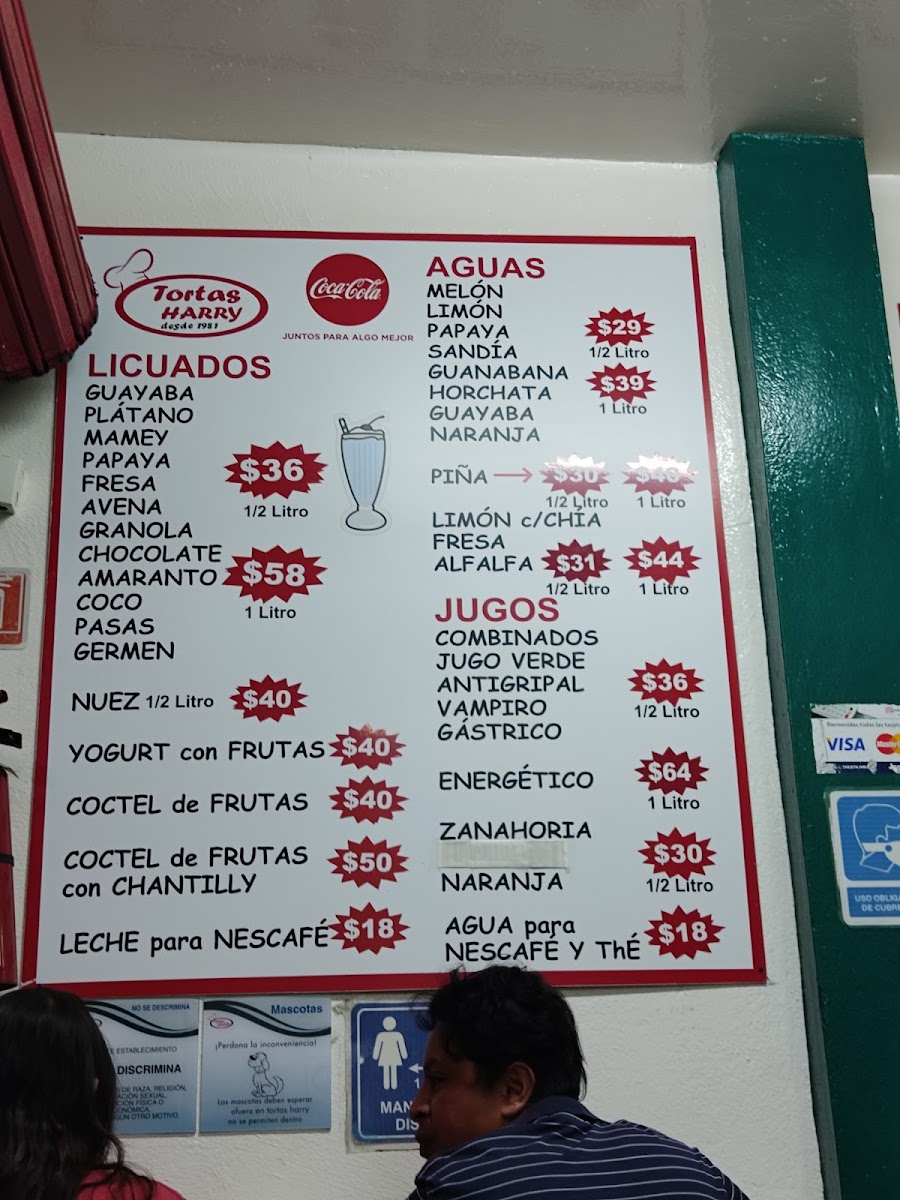 Tortas
HARRY
desde 1981
Coca-Cola
JUNTOS PARA ALGO MEJOR
LICUADOS
GUAYABA
PLÁTANO
MAMEY
PAPAYA
FRESA
AVENA
GRANOLA
CHOCOLATE
AMARANTO
COCO
PASAS
GERMEN
$36
1/2 Litro
$58
1 Litro
NUEZ 1/2 Litro $40
YOGURT con FRUTAS $40
COCTEL de FRUTAS $40
COCTEL de FRUTAS
con CHANTILLY
$50
LECHE para NESCAFÉ $18
AGUAS
MELÓN
LIMÓN
PAPAYA
SANDÍA
GUANABANA
HORCHATA
GUAYABA
NARANJA
$29
1/2 Litro
$39
1 Litro
PIÑA $30 $40
1/2 Litro 1 Litro
LIMÓN c/CHÍA
FRESA
ALFALFA $31 $44
1/2 Litro 1 Litro
JUGOS
COMBINADOS
JUGO VERDE
ANTIGRIPAL
VAMPIRO
GÁSTRICO
$36
1/2 Litro
ENERGÉTICO
$64
1 Litro
ZANAHORIA
NARANJA
$30
1/2 Litro
AGUA para
NESCAFÉ Y ThÉ
$18
VISA
USO OBLIGA
DE CUBRE
NO SE DISCRIMINA
ESTABLECIMIENTO
DISCRIMINA
DE RAZA, RELIGIÓN,
SEXUAL,
FÍSICA O
OTRO MOTIVO.
Mascotas
¡Perdona la inconveniencia!
Las mascotas deben esperar
afuera en tortas harry
no se permiten dentro
MAN
DIS